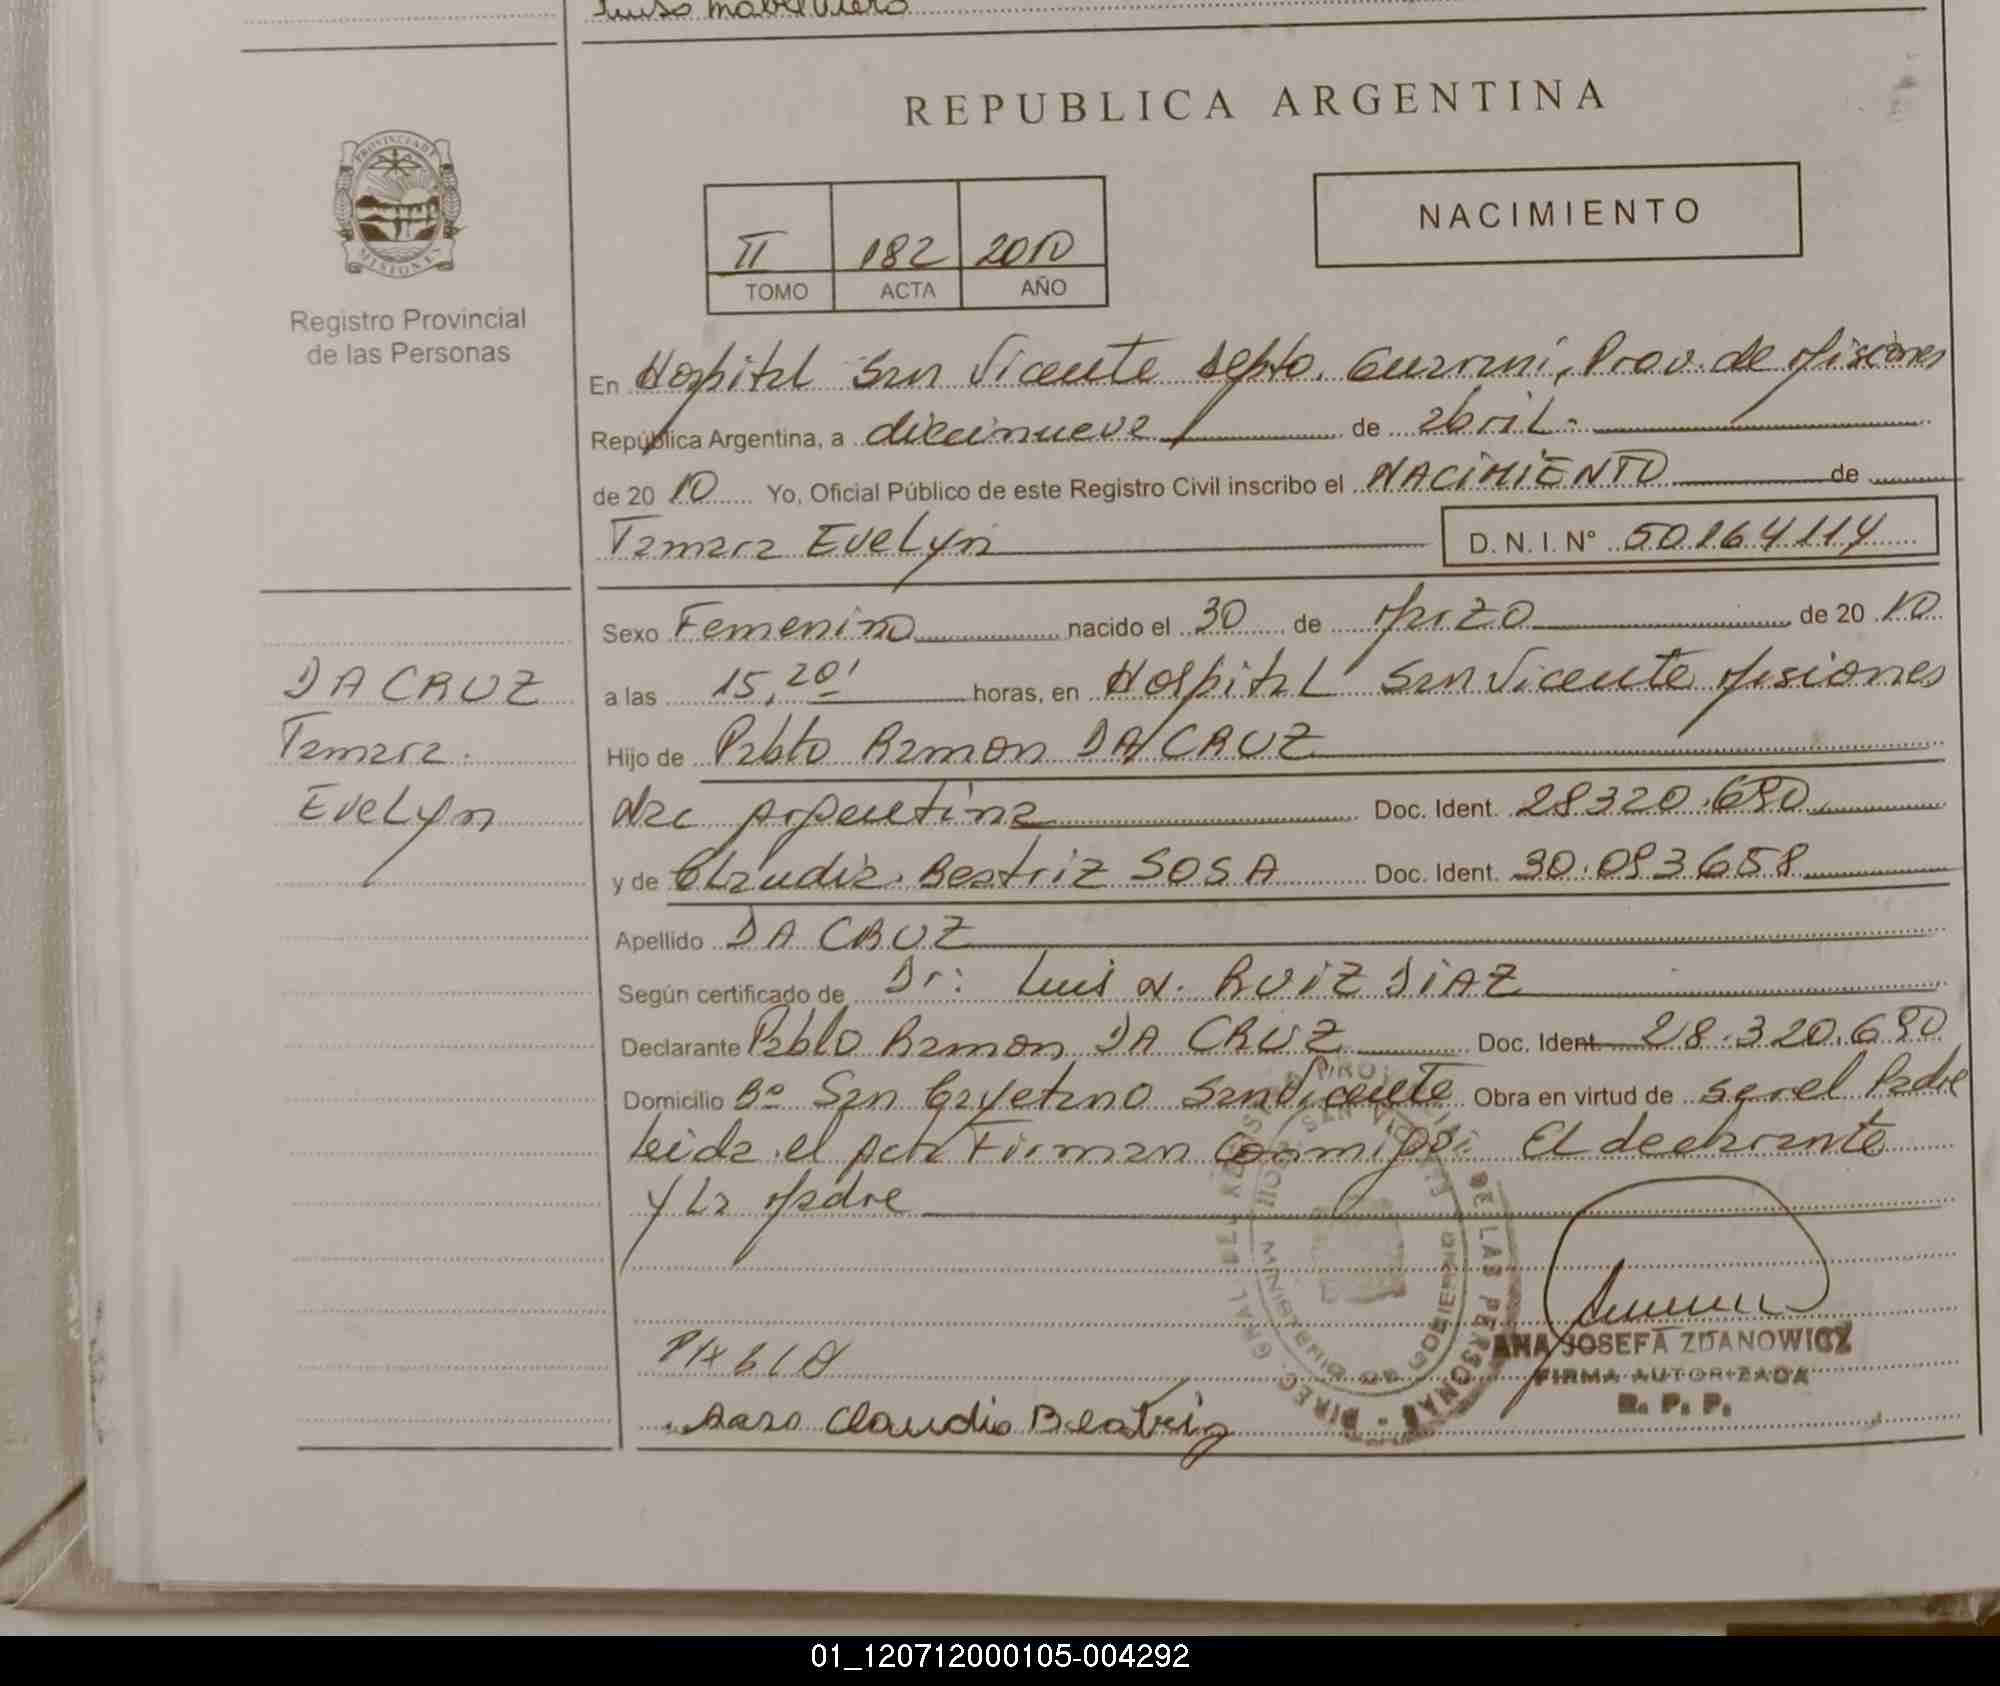 REPUBLICA ARGENTINA
NACIMIENTO
PROVINCIA DE
MISIONES
Registro Provincial
de las Personas
II 182 2010
TOMO ACTA AÑO
En Hospital San Vicente Depto. Guarani, Prov. de Misiones
República Argentina, a diecinueve de abril.
de 20 10 Yo, Oficial Público de este Registro Civil inscribo el NACIMIENTO de
Tamara Evelyn D. N. I. N° 50164114
Sexo Femenino nacido el 30 de Marzo de 20 10
DA CRUZ
Tamara
Evelyn
a las 15,20' horas, en Hospital San Vicente Misiones
Hijo de Pablo Ramon DA CRUZ
Nac Argentina Doc. Ident. 28320.690
y de Claudia Beatriz SOSA Doc. Ident. 30.093658
Apellido DA CRUZ
Según certificado de Dr: Luis A. RUIZ DIAZ
Declarante Pablo Ramon DA CRUZ Doc. Ident 28.320.690
Domicilio B° San Cayetano San Vicente Obra en virtud de ser el Padre
Leida el Acta Firman El declarante
y La Madre
DE LAS PERSONAS
DIREC. GRAL
MINISTERIO DE GOBIERNO
ANA JOSEFA ZDANOWICZ
FIRMA AUTORIZADA
R. P. P.
Claudia Beatriz
01_120712000105-004292